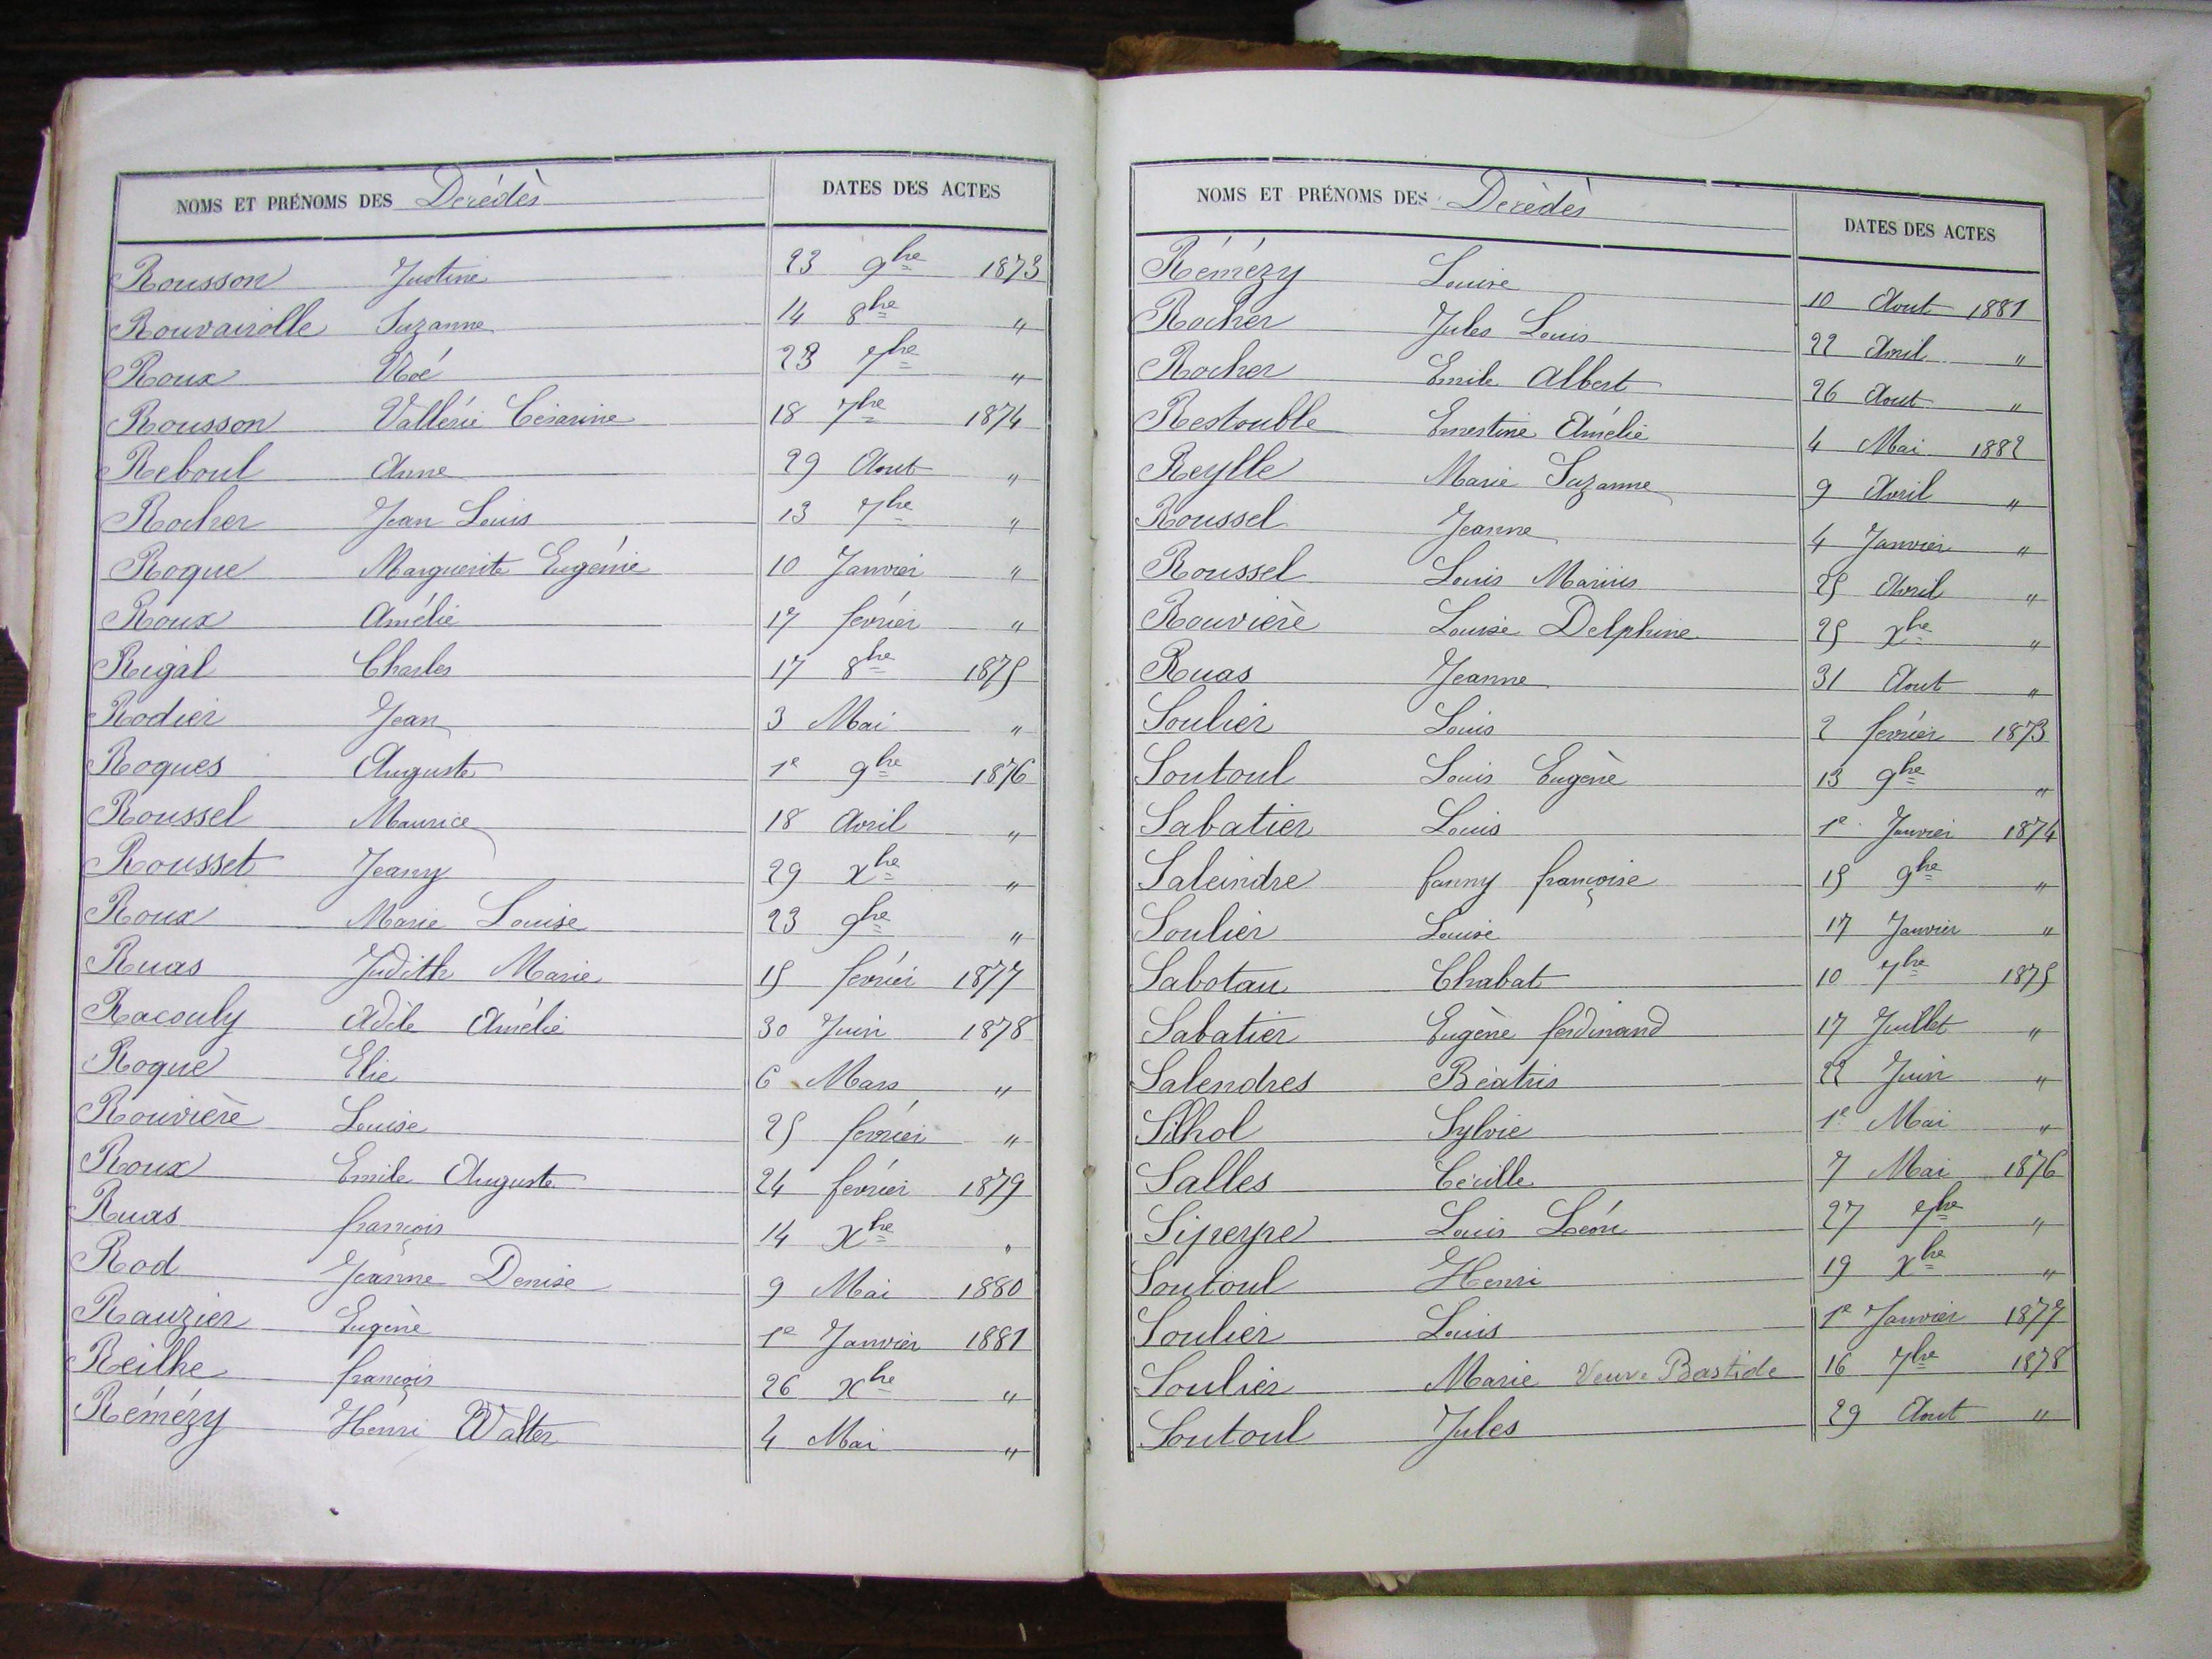 NOMS ET PRÉNOMS DES Décédès DATES DES ACTES
Rousson Justine 23 9bre 1873
Rouvairolle Suzanne 14 8bre "
Roux Noé 23 7bre "
Rousson Vallérie Césarine 18 7bre 1874
Reboul Anne 29 Aout "
Rocher Jean Louis 13 7bre "
Roque Marguerite Eugénie 10 Janvier "
Roux Amélie 17 février "
Rigal Charles 17 8bre 1875
Rodier Jean 3 Mai "
Roques Auguste 1e 9bre 1876
Roussel Maurice 18 Avril "
Rousset Jeany 29 Xbre "
Roux Marie Louise 23 9bre "
Ruas Judith Marie 15 février 1877
Racouly Adèle Amélie 30 Juin 1878
Roque Elie 6 Mars "
Rouvière Louise 25 février "
Roux Emile Auguste 24 février 1879
Ruas françois 14 Xbre "
Rod Jeanne Denise 9 Mai 1880
Rauzier Eugène 1e Janvier 1881
Reilhe françois 26 Xbre "
Rémézy Hénri Walter 4 Mai "
NOMS ET PRÉNOMS DES Décédès DATES DES ACTES
Rémézy Louise 10 Aout 1881
Rocher Jules Louis 22 Avril "
Rocher Emile Albert 26 Aout "
Restouble Ernestine Amélie 4 Mai 1882
Reylle Marie Suzanne 9 Avril "
Roussel Jeanne 4 Janvier "
Roussel Louis Marius 25 Avril "
Rouvière Louise Delphine 25 Xbre "
Ruas Jeanne 31 Aout "
Soulier Louis 2 février 1873
Soutoul Louis Eugène 13 9bre "
Sabatier Louis 1e Janvier 1874
Saleindre fanny françoise 15 9bre "
Soulier Louise 17 Janvier "
Sabotau Chabat 10 7bre 1875
Sabatier Eugène ferdinand 17 Juillet "
Salendres Béatris 22 Juin "
Silhol Sylvie 1e Mai "
Salles Cécille 7 Mai 1876
Sipeyre Louis Léon 27 7bre "
Soutoul Henri 19 Xbre "
Soulier Louis 1e Janvier 1877
Soulier Marie Veuve Bastide 16 7bre 1878
Soutoul Jules 29 Aout "